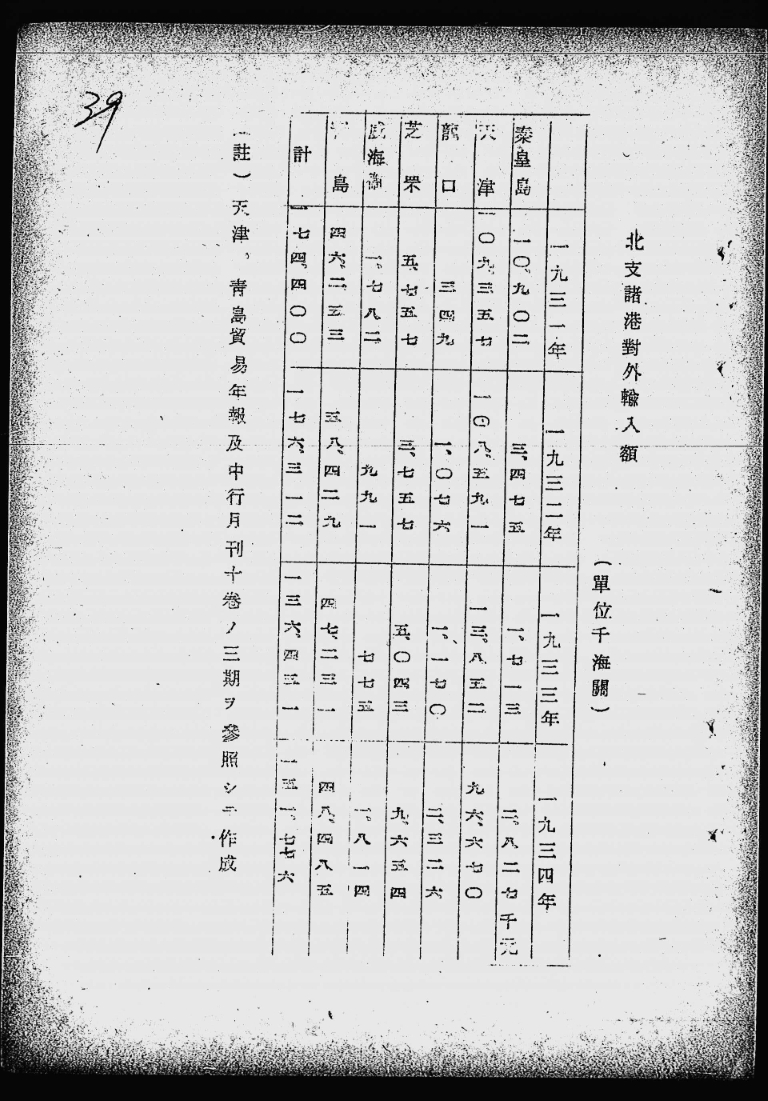 39
北支諸港對外輸入額
(單位千海關)
一九三一年 一九三二年 一九三三年 一九三四年
秦皇島 一〇、九〇二 三、四七五 一、七一三 二、八二七千元
天津 一〇九、三五七 一〇八、五九一 九六、六七〇
龍口 三四九 一、〇七六 一、一七〇 二、三二六
芝罘 五、七五七 三、七五七 五、〇四三 九、六五四
威海衞 一、七八二 九九一 七七五 一、八一四
島 四六、二五三 五八、四二九 四七、二三一 四八、四八五
計 一七四、四〇〇 一七六、三一二 一三六、四五一 一五一、七七六
(註)天津、青島貿易年報及中行月刊十卷ノ三期ヲ參照シテ作成